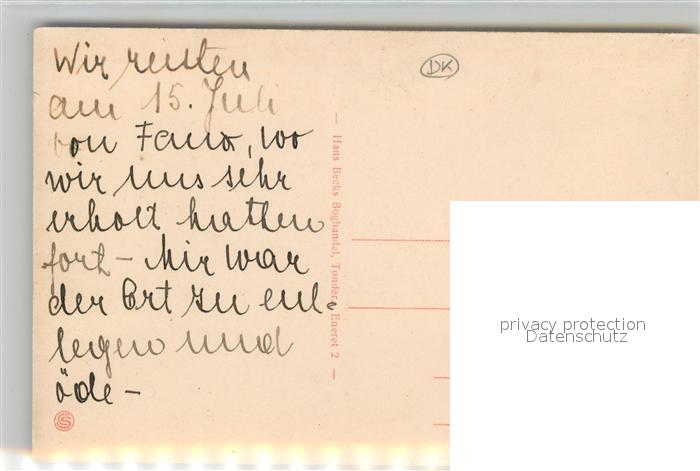 Wir reisten
am 15. Juli
von Fanø, wo
wir uns sehr
erholt hatten
fort – Mir war
der Ort zu ent-
legen und
öde –
DK
— Hans Becks Boghandel, Tønder. Eneret 2 —
privacy protection
Datenschutz